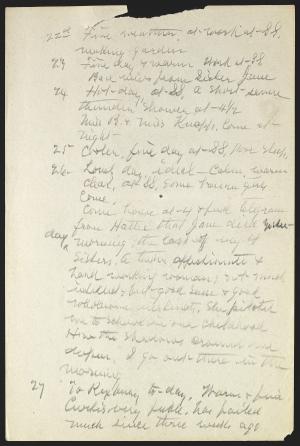 22nd Fine weather, at work at 88,
making garden
23 Fine day & warm work at 88
Bad news from Sister Jane
24 Hot day, at 88 a short severe
thunder shower at 4½
Miss B. & Miss Knapp, come at
night
25 Cooler, fine day at 88,
26 Lovely day, ideal - Calm, warm
clear, at 88, some
Come.
Come home at 4 & find telegram
from Hattie that Jane died yester-
day morning, the last of my 4
Sisters, a tender affectionate &
hard working woman; not much
intellect, but good sense & good
wholesome
me to school in our childhood
How the shadows around me
deepen. I go out there in the
morning
27 To Roxbury to-day, Warm & fine
Curtis very feeble, has failed
much since three weeks ago